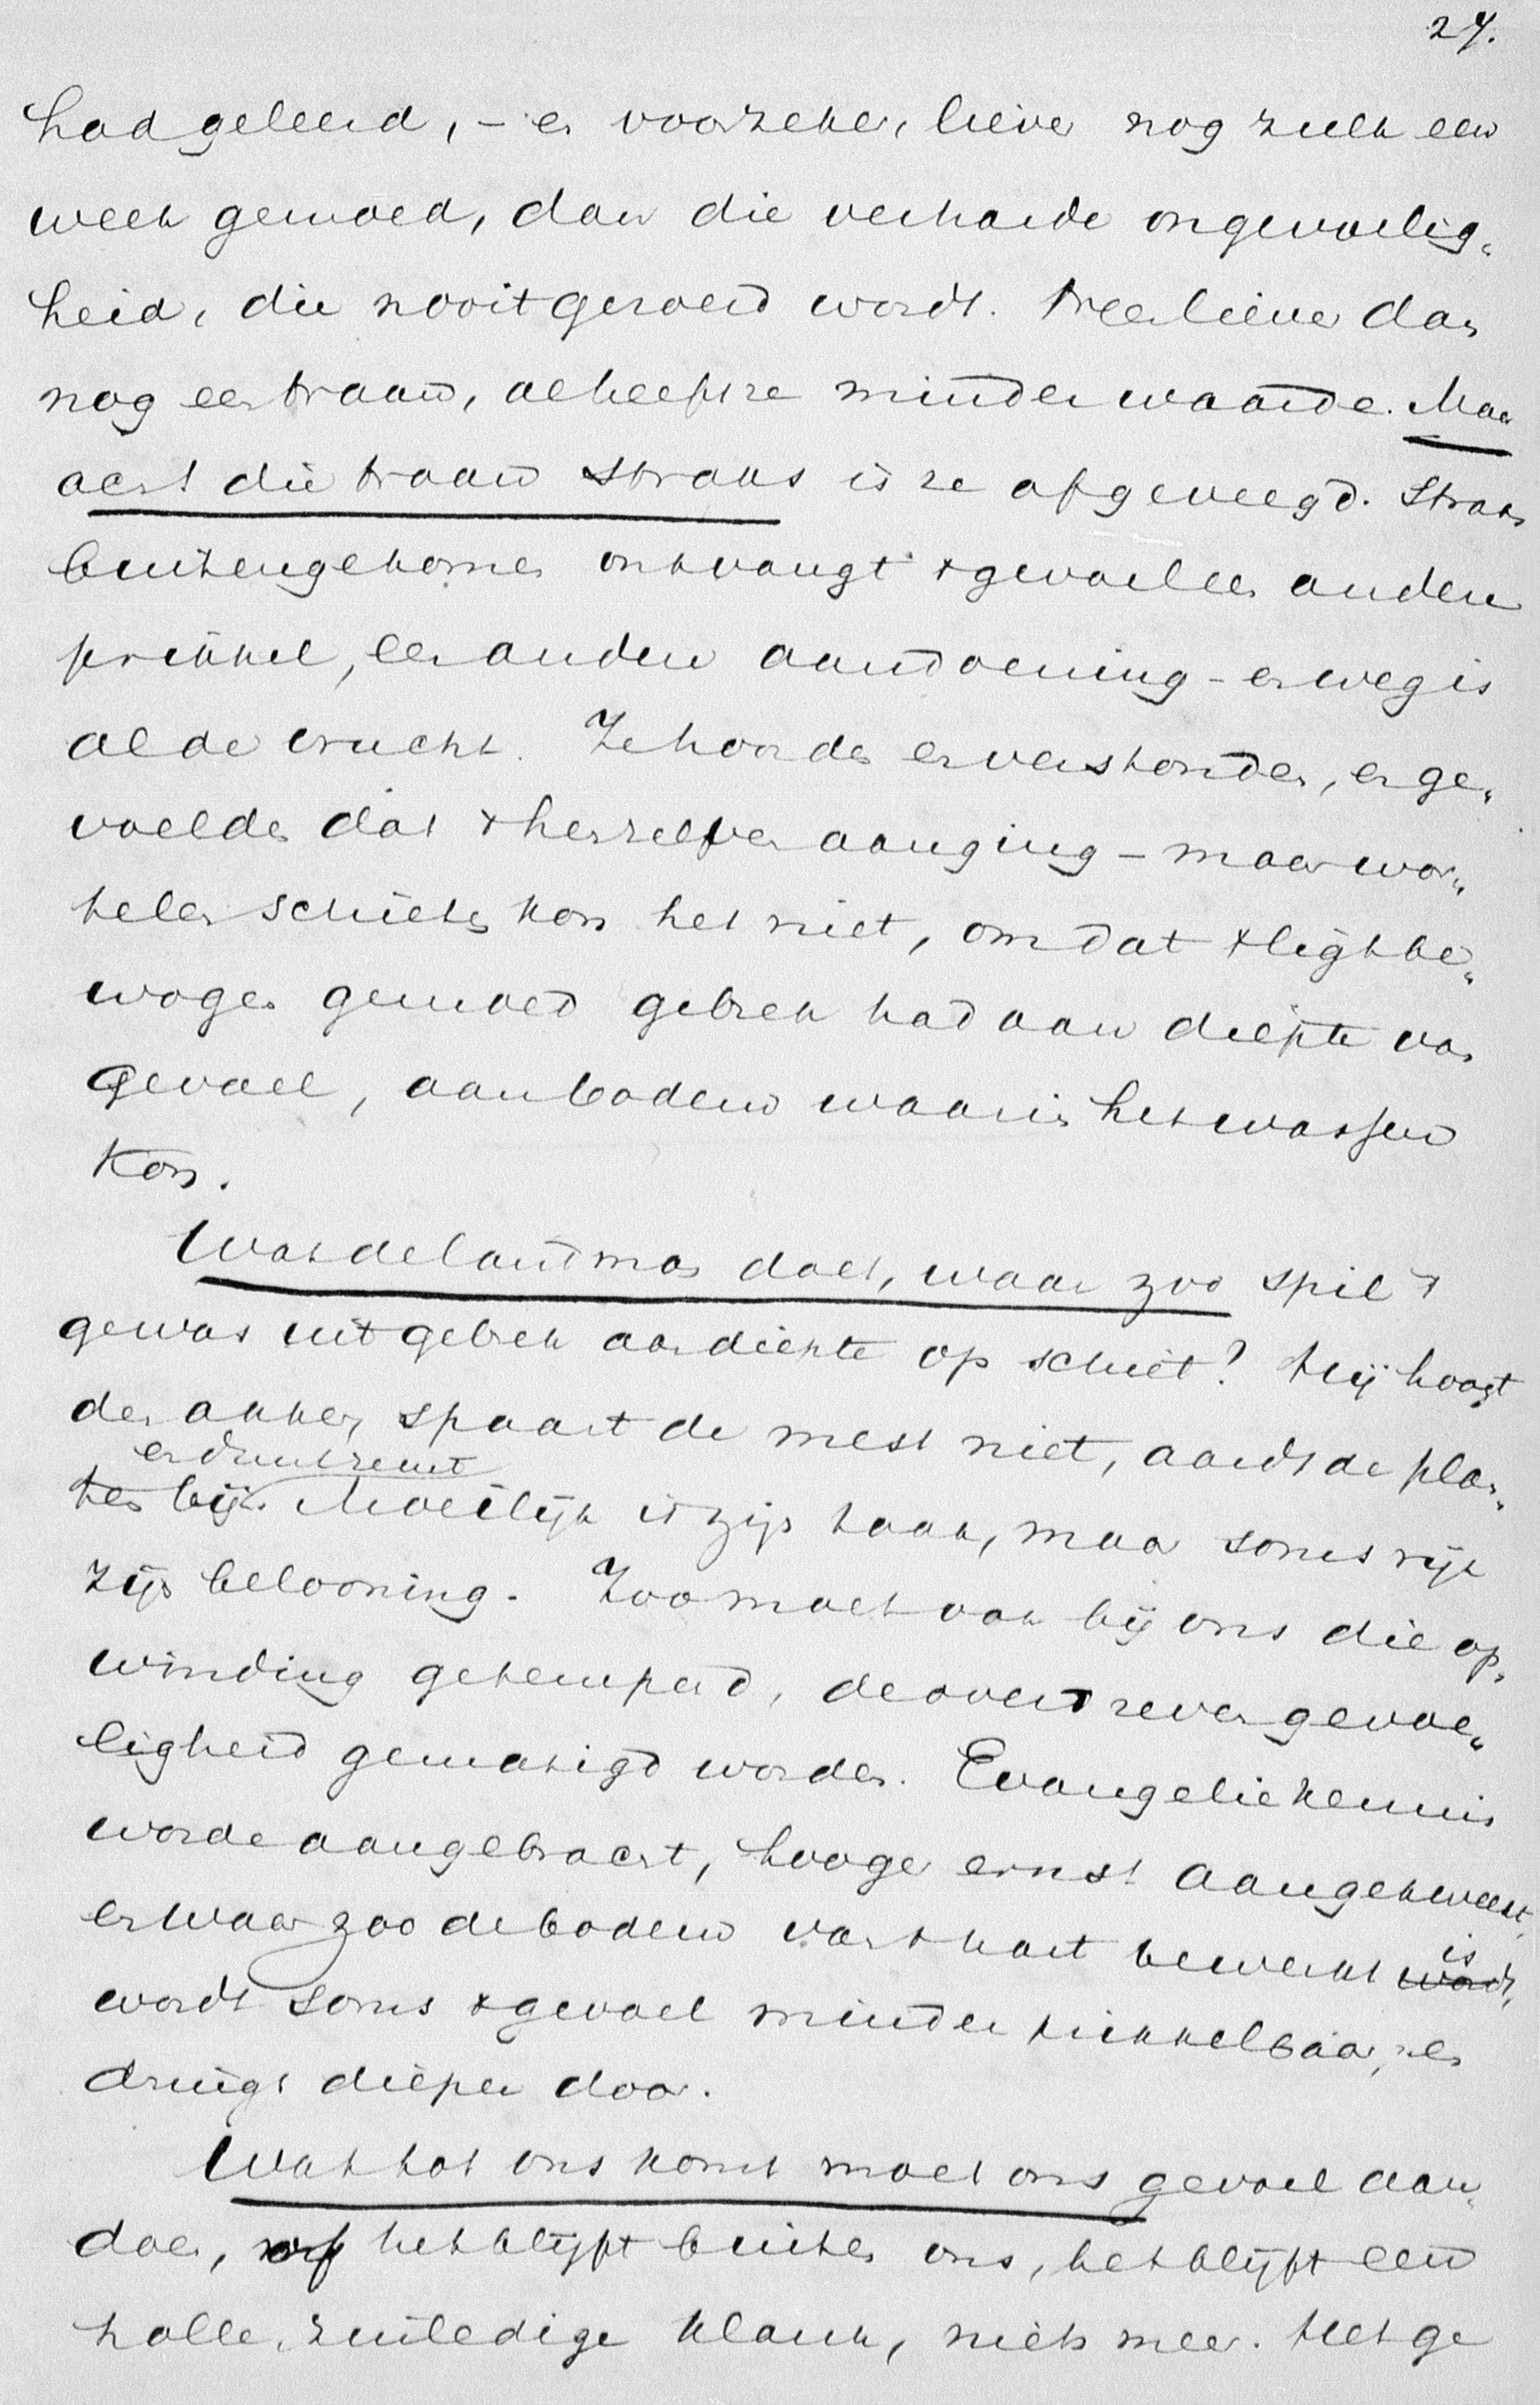 27.
had geleerd, – en voorzeker, liever nog zulk een
week gemoed, dan die verharde ongevoelig„
heid, die nooit geroerd wordt. Veel liever dan
nog een traan, al heeft ze minder waarde. Maar
acht die traan straks is ze afgeveegd. Straks
buitengekomen ontvangt 't gevoel een andere
prikkel, een andere aandoening – en weg is
al de vrucht. Ze hoorden en verstonden, en ge„
voelden dat 't henzelven aanging – maar wor„
telen schieten kon het niet, omdat 't ligt be„
wogen gemoed gebrek had aan diepte van
gevoel, aan bodem waarin het wassen
kon.
Wat de landman doet, waar zoo spil 't
gewas uit gebrek aan diepte op schiet? Hij hoogt
den akker, spaart de mest niet, aardt de plan„
en dunt ze uit
ten bij. Moeilijk is zijn taak, maar soms rijk
zijn belooning. Zoo moet ook bij ons die op„
winding getemperd, de overdreven gevoe„
ligheid gematigd worden. Evangeliekennis
worde aangebracht, hooger ernst aangekweekt,
en waar zoo de bodem van 't hart bewerkt wordt,
is
wordt soms 't gevoel minder prikkelbaar, en
dringt dieper door.
Wat tot ons komt moet ons gevoel aan„
doen, of het blijft buiten ons, het blijft een
holle, zielledige klank, niets meer. Het ge